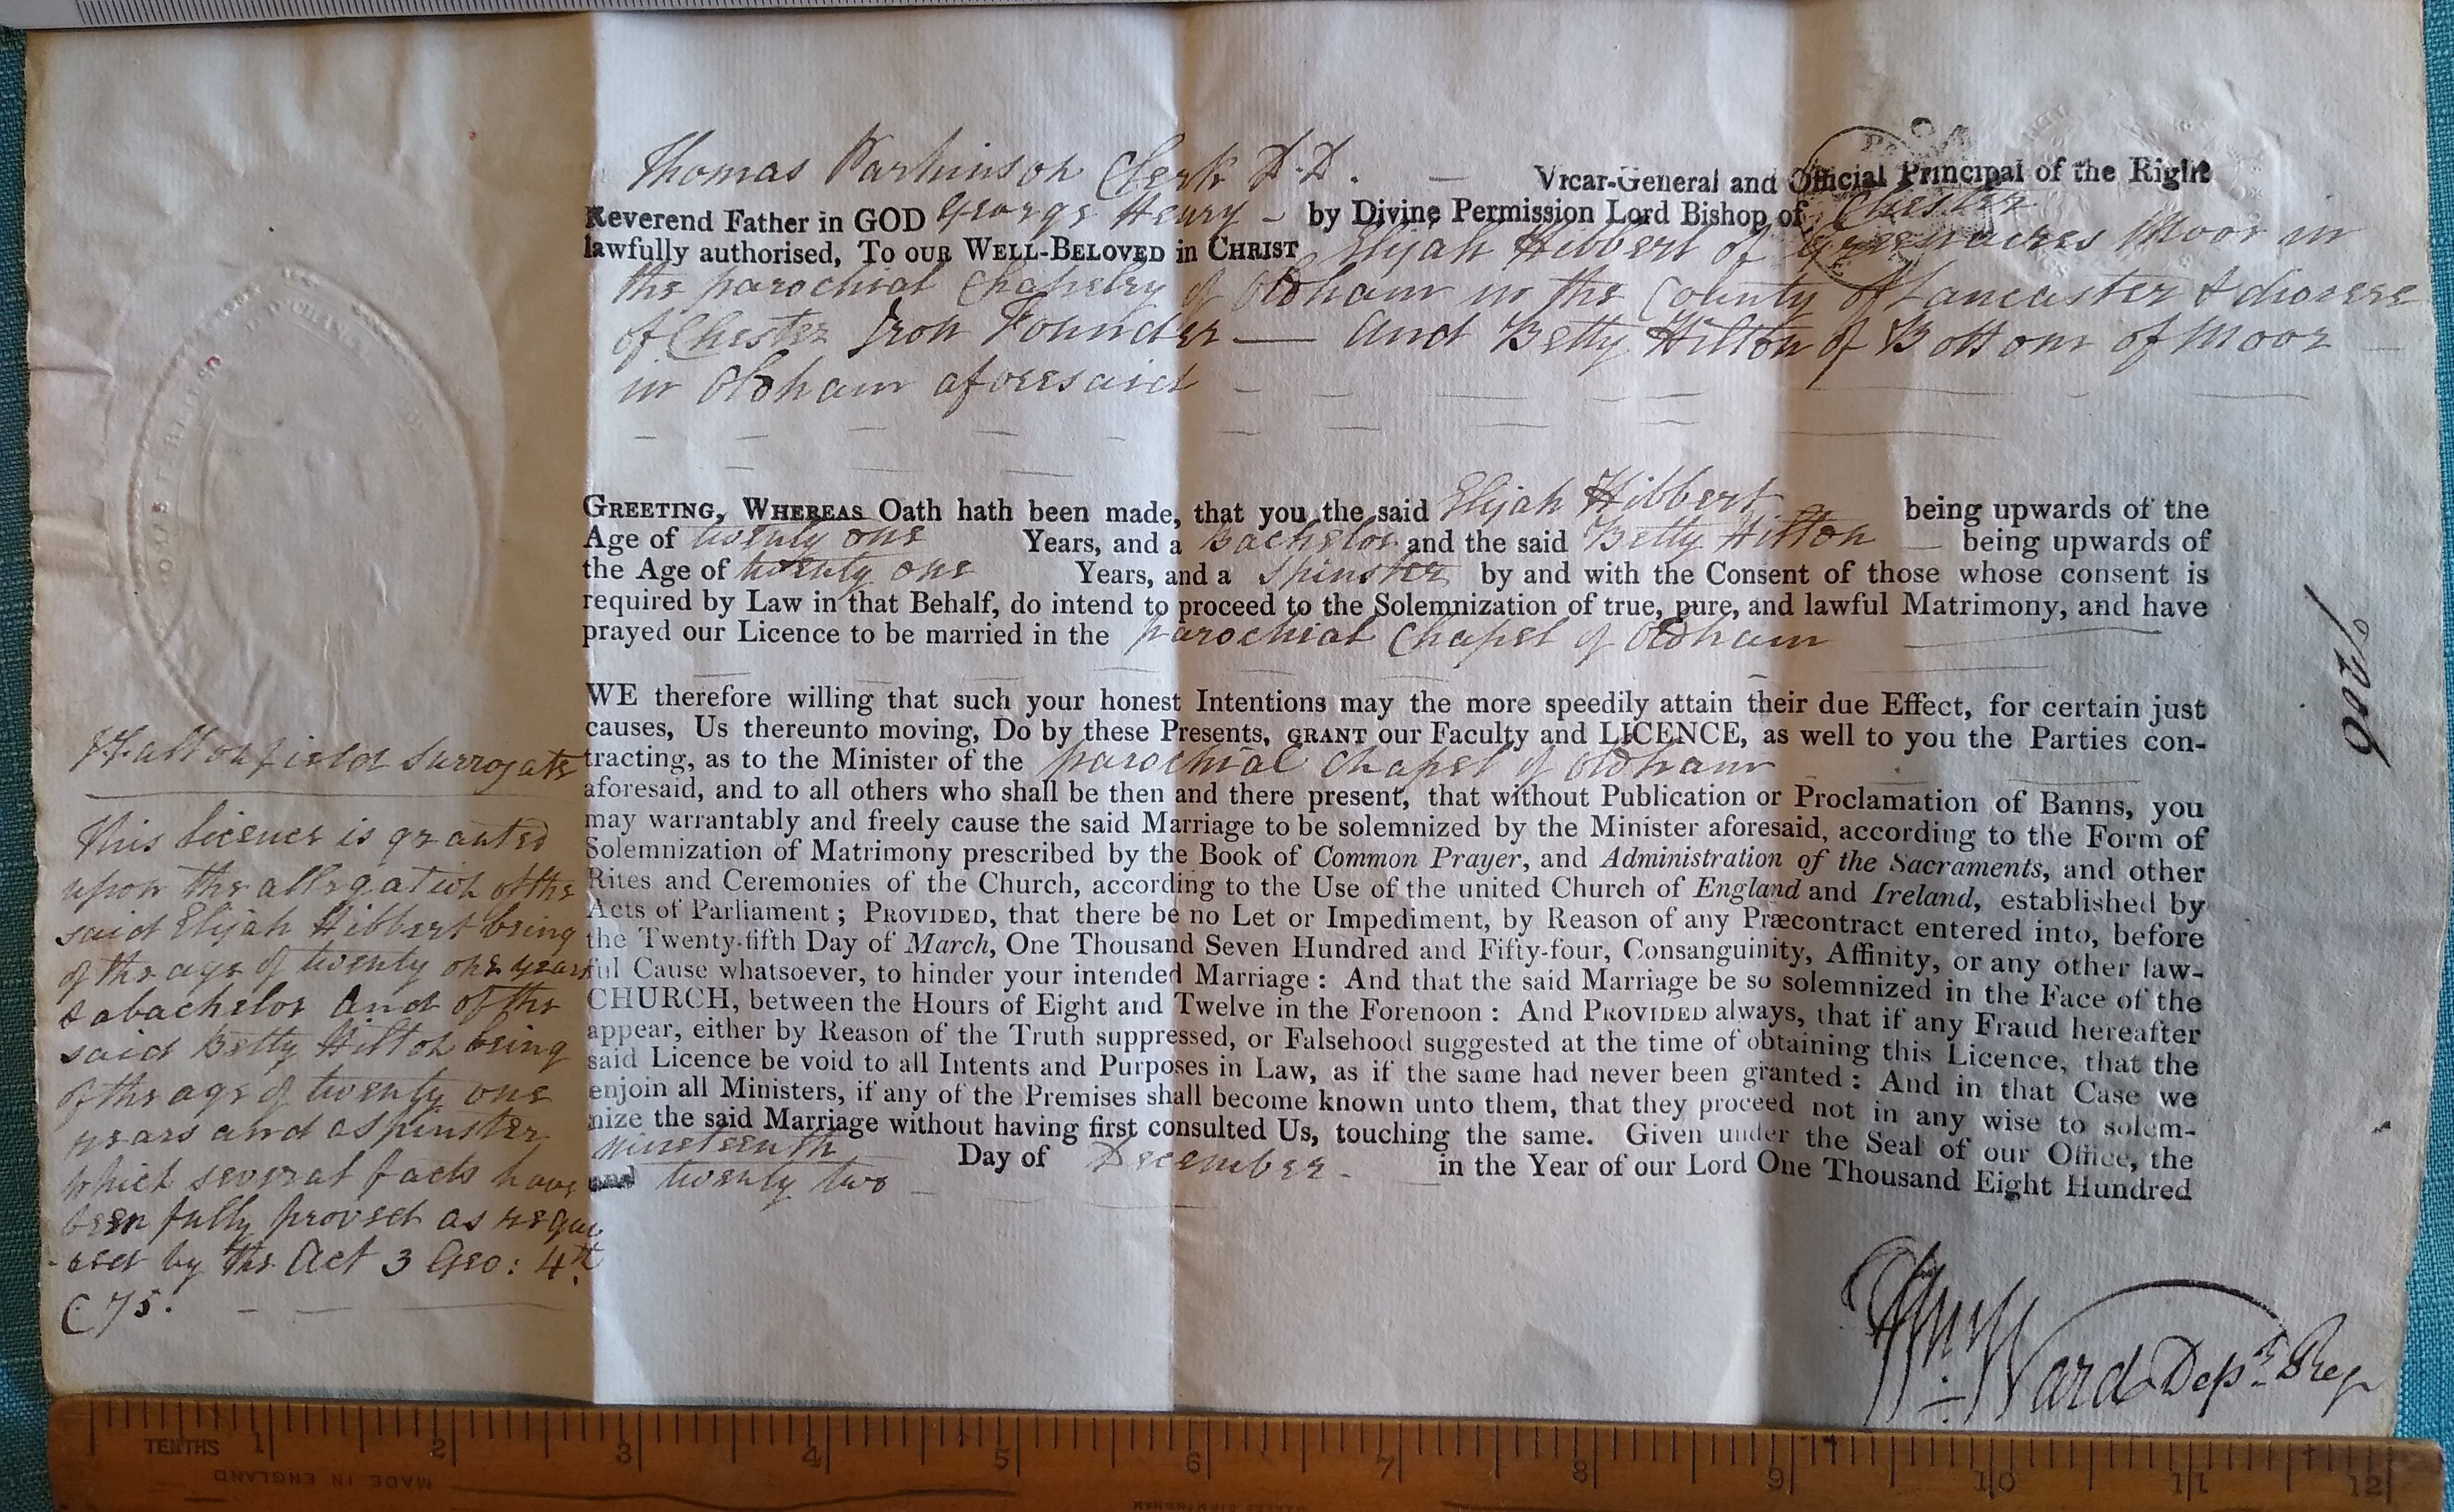 Thomas Parkinson Clerk D.D. — Vicar-General and Official Principal of the Right
Reverend Father in GOD George Henry – by Divine Permission Lord Bishop of Chester
lawfully authorised, To our Well-Beloved in Christ Elijah Hibbert of Greenacres Moor in
the parochial Chapelry of Oldham in the County of Lancaster & diocese
of Chester Iron Founder — and Betty Hilton of Bottom of Moor –
in Oldham aforesaid –
Greeting, Whereas Oath hath been made, that you the said Elijah Hibbert being upwards of the
Age of twenty one Years, and a Bachelor and the said Betty Hilton — being upwards of
the Age of twenty one Years, and a Spinster by and with the Consent of those whose consent is
required by Law in that Behalf, do intend to proceed to the Solemnization of true, pure, and lawful Matrimony, and have
prayed our Licence to be married in the parochial Chapel of Oldham
WE therefore willing that such your honest Intentions may the more speedily attain their due Effect, for certain just
causes, Us thereunto moving, Do by these Presents, GRANT our Faculty and LICENCE, as well to you the Parties con-
tracting, as to the Minister of the parochial Chapel of Oldham
aforesaid, and to all others who shall be then and there present, that without Publication or Proclamation of Banns, you
may warrantably and freely cause the said Marriage to be solemnized by the Minister aforesaid, according to the Form of
Solemnization of Matrimony prescribed by the Book of Common Prayer, and Administration of the Sacraments, and other
Rites and Ceremonies of the Church, according to the Use of the united Church of England and Ireland, established by
Acts of Parliament; Provided, that there be no Let or Impediment, by Reason of any Præcontract entered into, before
the Twenty-fifth Day of March, One Thousand Seven Hundred and Fifty-four, Consanguinity, Affinity, or any other law-
ful Cause whatsoever, to hinder your intended Marriage: And that the said Marriage be so solemnized in the Face of the
CHURCH, between the Hours of Eight and Twelve in the Forenoon: And Provided always, that if any Fraud hereafter
appear, either by Reason of the Truth suppressed, or Falsehood suggested at the time of obtaining this Licence, that the
said Licence be void to all Intents and Purposes in Law, as if the same had never been granted: And in that Case we
enjoin all Ministers, if any of the Premises shall become known unto them, that they proceed not in any wise to solem-
nize the said Marriage without having first consulted Us, touching the same. Given under the Seal of our Office, the
nineteenth Day of December – in the Year of our Lord One Thousand Eight Hundred
and twenty two –
Surrogate
This licence is granted
upon the allegation of the
said Elijah Hibbert being
of the age of twenty one years
& a bachelor and of the
said Betty Hilton being
of the age of twenty one
years and a spinster
which several facts have
been fully proved as requi
-red by the Act 3 Geo: 4th
C 75.
Wm Ward Depy Reg
TENTHS 1 2 3 4 5 6 7 8 9 10 11 12
MADE IN ENGLAND